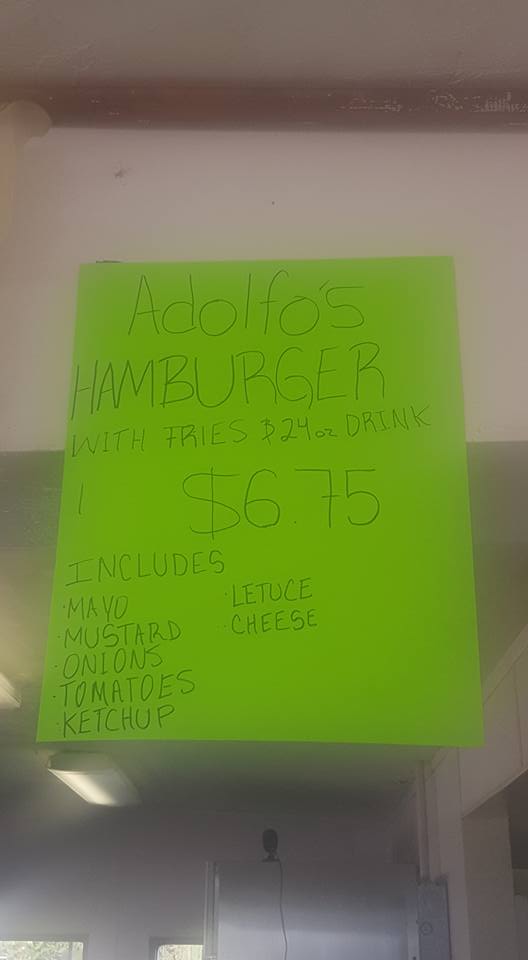 Adolfo's
HAMBURGER
WITH FRIES $ 24oz DRINK
1 $6.75
INCLUDES
· MAYO
· MUSTARD
· ONIONS
· TOMATOES
· KETCHUP
· LETUCE
· CHEESE